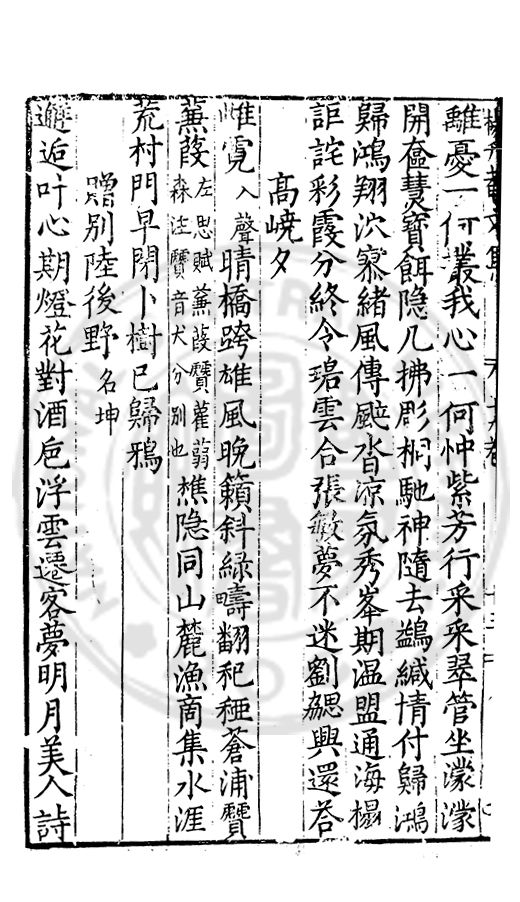 離憂一何叢我心一何忡紫芳行采采翠管坐濛濛
開奩慧寶餌隐几拂彫桐馳神隨去鷁緘情付歸鴻
歸鴻翔泬寥緒風傳颼沓凉氛秀峯期温盟通海榻
詎詫彩霞分終令碧雲合張敏夢不迷劉勰興還答
高嶢夕
雌霓入聲晴橋跨雄風晚籟斜緑疇翻䆉稏蒼浦贙
蒹葭左思賦蒹葭贙雚蒻
森注贙音犬分别也樵隐同山麓漁商集水涯
荒村門早閉卜樹已歸鴉
贈别陸後野名坤
邂逅叶心期燈花對酒巵浮雲遷客夢明月美人詩